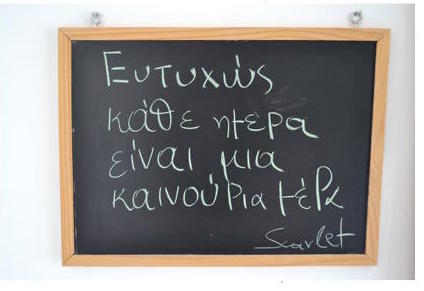 Ευτυχώς
κάθε ημερα
είναι μια
καινούρια μέρα
Scarlet